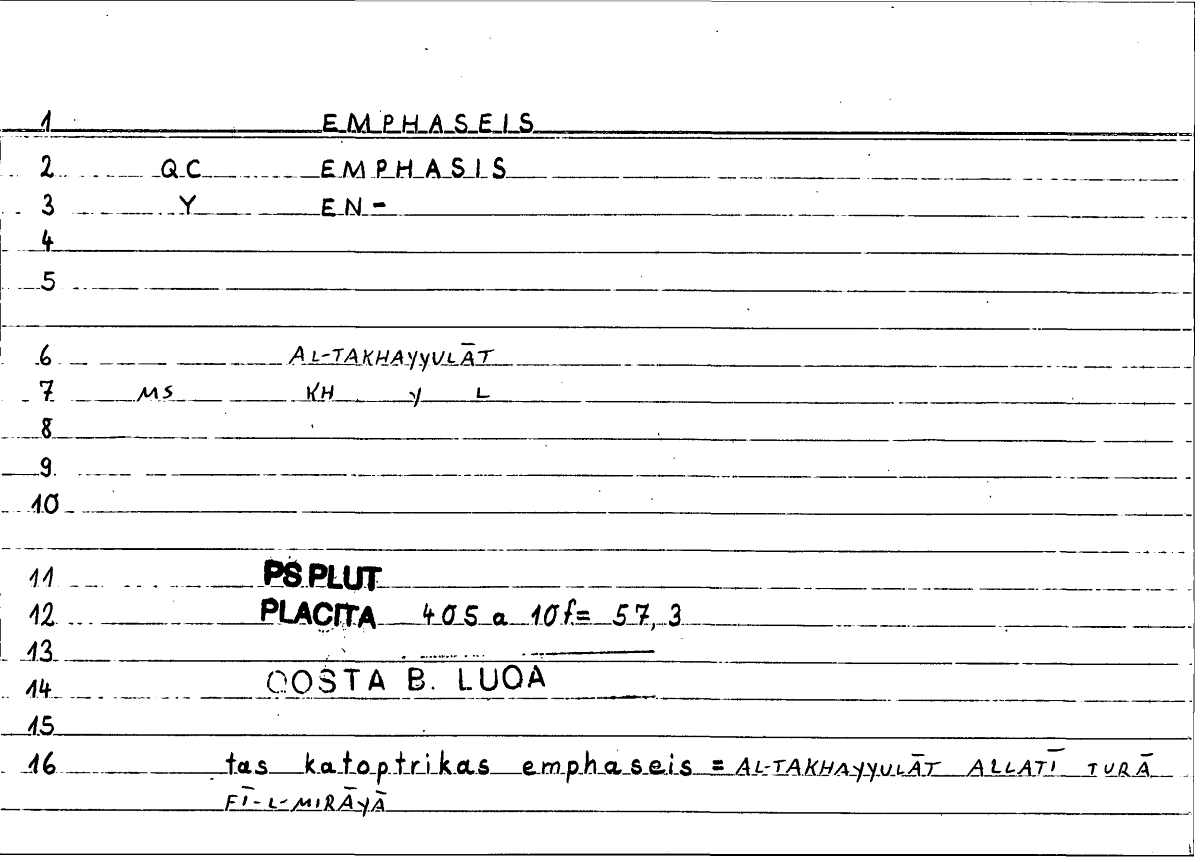 1 EMPHASEIS
2 QC EMPHASIS
3 Y EN-
4
5
6 AL-TAKHAYYULĀT
7 MS KH Y L
8
9
10
11 PS.PLUT
12 PLACITA 405 a 10f= 57,3
13
14 COSTA B. LUOA
15
16 tas katoptrikas emphaseis = AL-TAKHAYYULĀT ALLATĪ TURĀ
FĪ-L-MIRĀYĀ